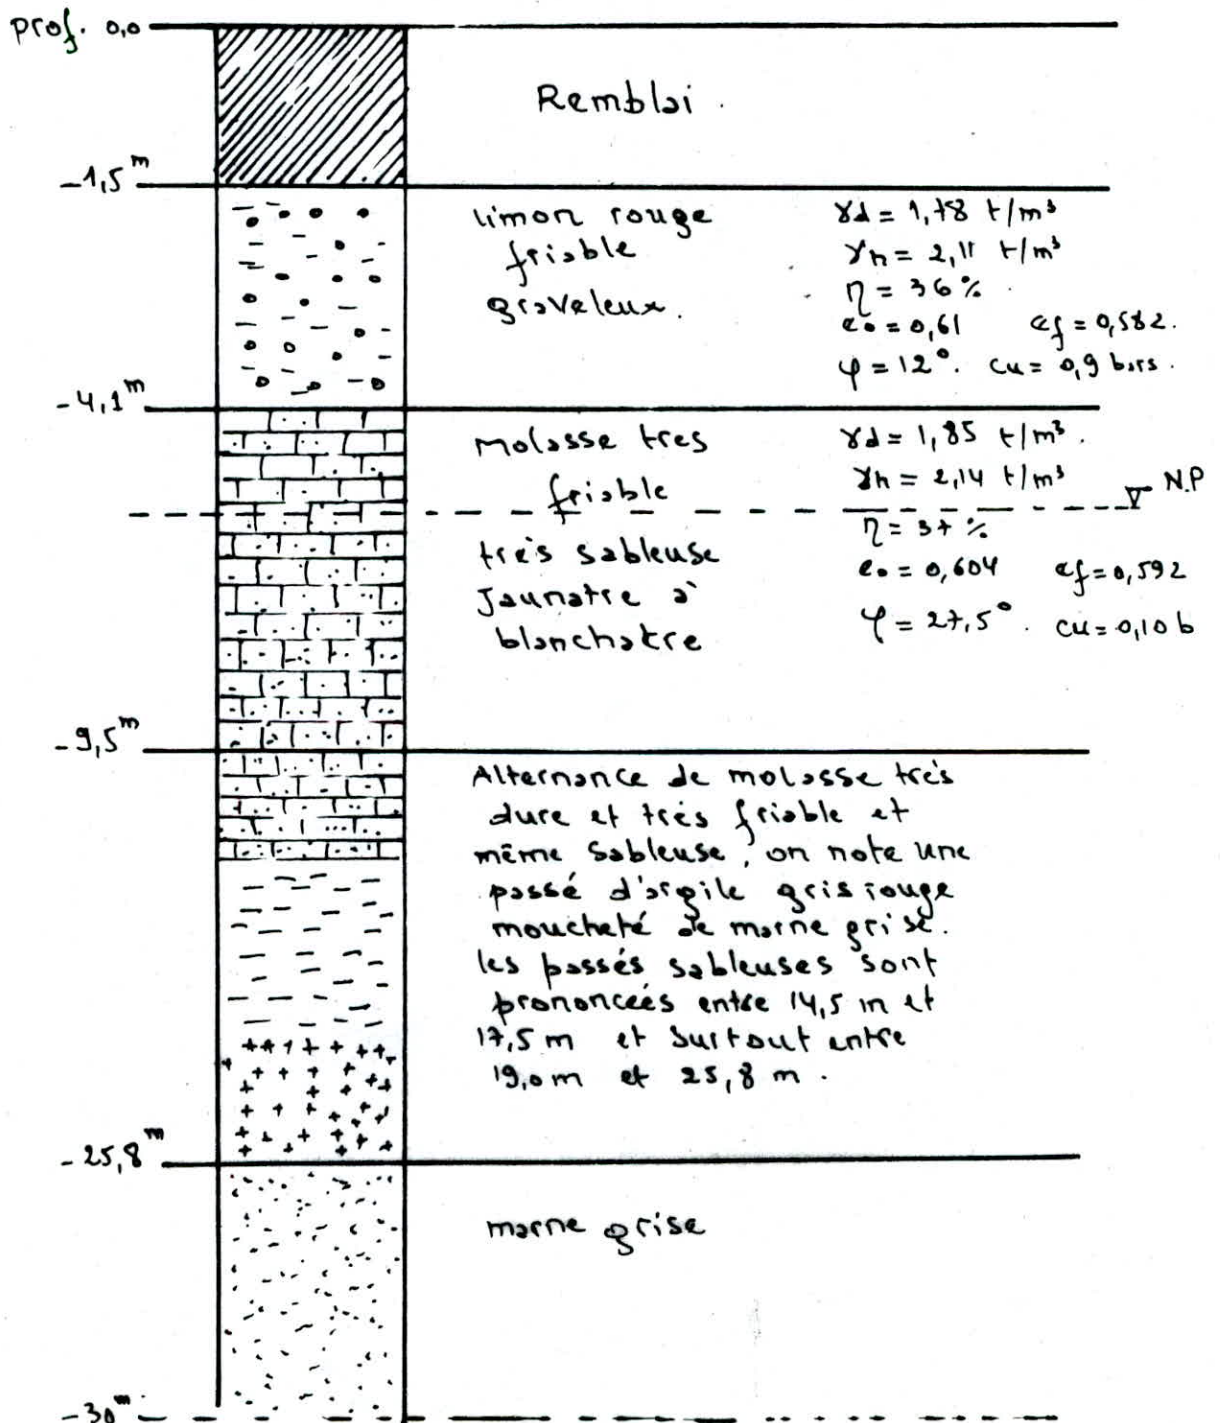 prof. 0,0
Remblai.
-1,5m
limon rouge
friable
graveleux.
γd = 1,78 t/m³
γh = 2,11 t/m³
η = 36 %
e₀ = 0,61 ef = 0,582.
φ = 12°. cu = 0,9 bars.
-4,1m
Molasse tres
friable
très sableuse
Jaunatre à
blanchatre
γd = 1,85 t/m³.
γh = 2,14 t/m³
N.P
η = 37 %
e₀ = 0,604 ef = 0,592
φ = 27,5°. cu = 0,10 b
-9,5m
Alternance de molasse très
dure et très friable et
même Sableuse, on note une
passé d'argile gris rouge
moucheté de marne grise.
les passés sableuses sont
prononcées entre 14,5 m et
17,5 m et surtout entre
19,0 m et 25,8 m.
-25,8m
marne grise
-30m